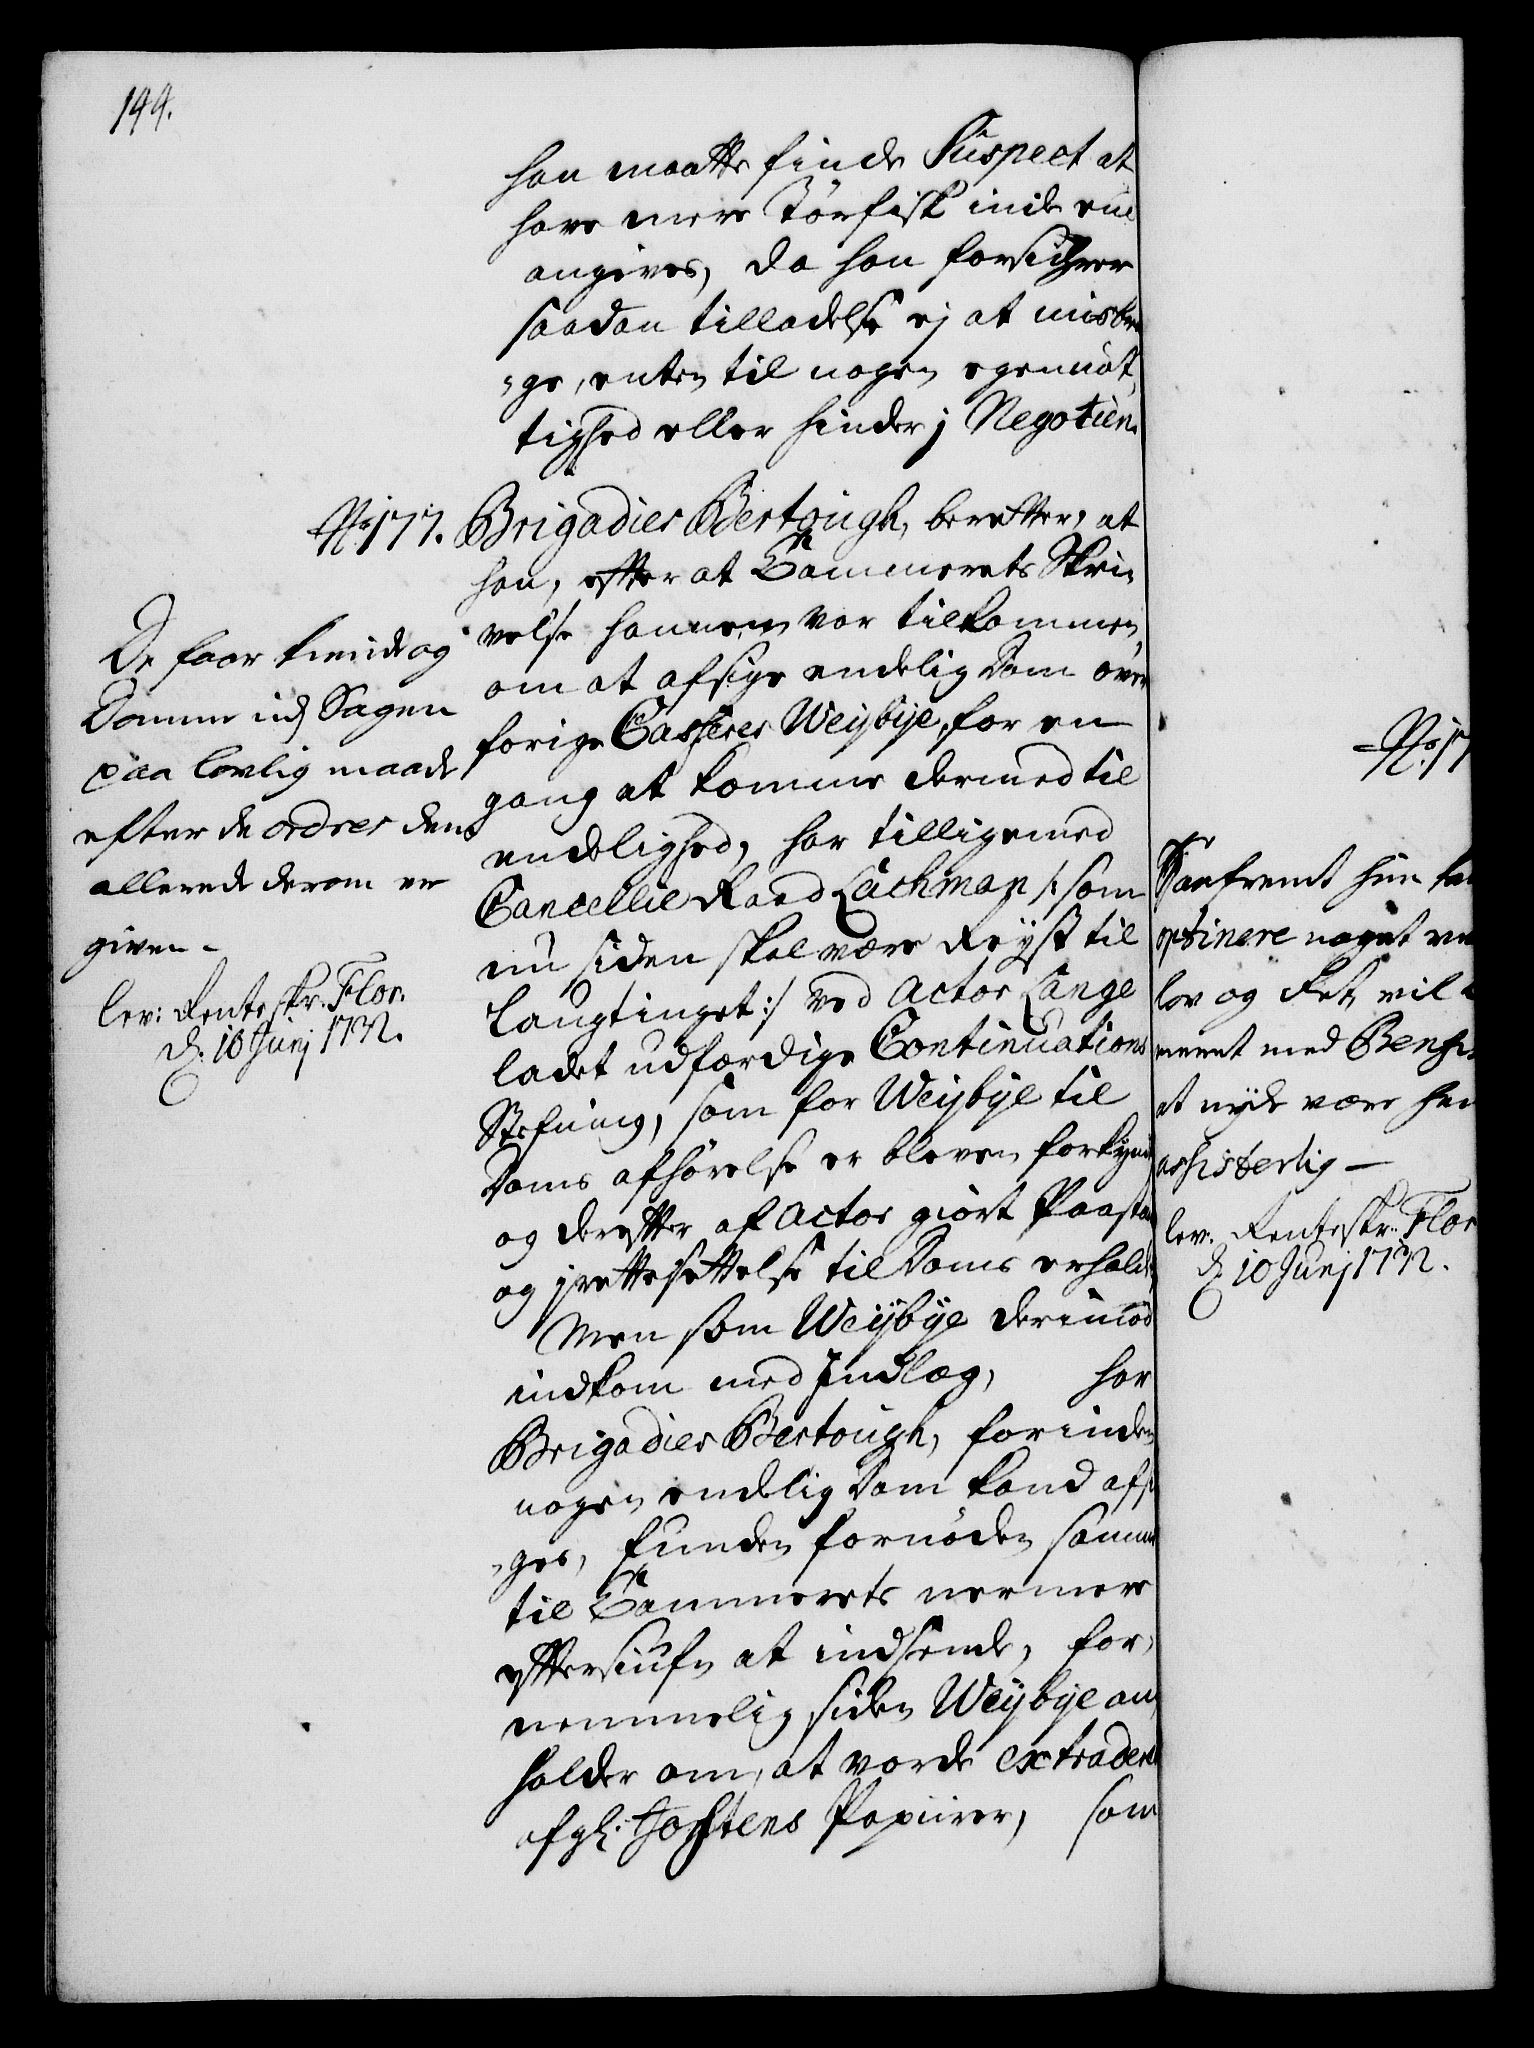 144.
han maatte finde Suspect at
have mere Törfisk inde end
angives, da han forsichrer
saadan tilladelse ej at misbru
=ge, enten til nogen egennöt,
tighed eller hinder j Negotien.
No 177. Brigadier Bertough, beretter, at
han, efter at Cammerets Skri,
velse hannem var tilkommen,
om at afsige endelig Dom over
forige Casserer Weijbye, for en
gang at komme dermed til
endelighed, har tilligemed
Cancellie Raad Lachman /: som
nu siden skal være Reyst til
Laugtinget :/ ved Actor Lange
ladet udfærdige Continuations
Stefning, som for Weijbye til
Doms afhörelse er bleven forkynt
og derefter af Actor giort Paastand
og jrettesettelse til Doms erholde,
Men som Weijbye derimod
indkom med Indlæg, har
Brigadier Bertough, forinden
nogen endelig Dom kand afsi
=ges, funden fornöden samme
til Cammerets nermere
Eftersiufn at indsende, for,
nemmelig siden Weijbye an,
holder om, at vorde extraderet
afg: Tostens Papiirer, som
De faar kiende og
Domme udj Sagen
paa lovlig maade
efter de ordres dem
allerede derom er
given.
lev: Renteskr. Flor.
d. 10 Junj 1732.
No 17
Saafremt hun ka
optinere noget ve
lov og Ret, vil
meret med Benef
at nyde være hen
assisterlig
lev. Renteskr. Flor
d. 10 Junj 1732.